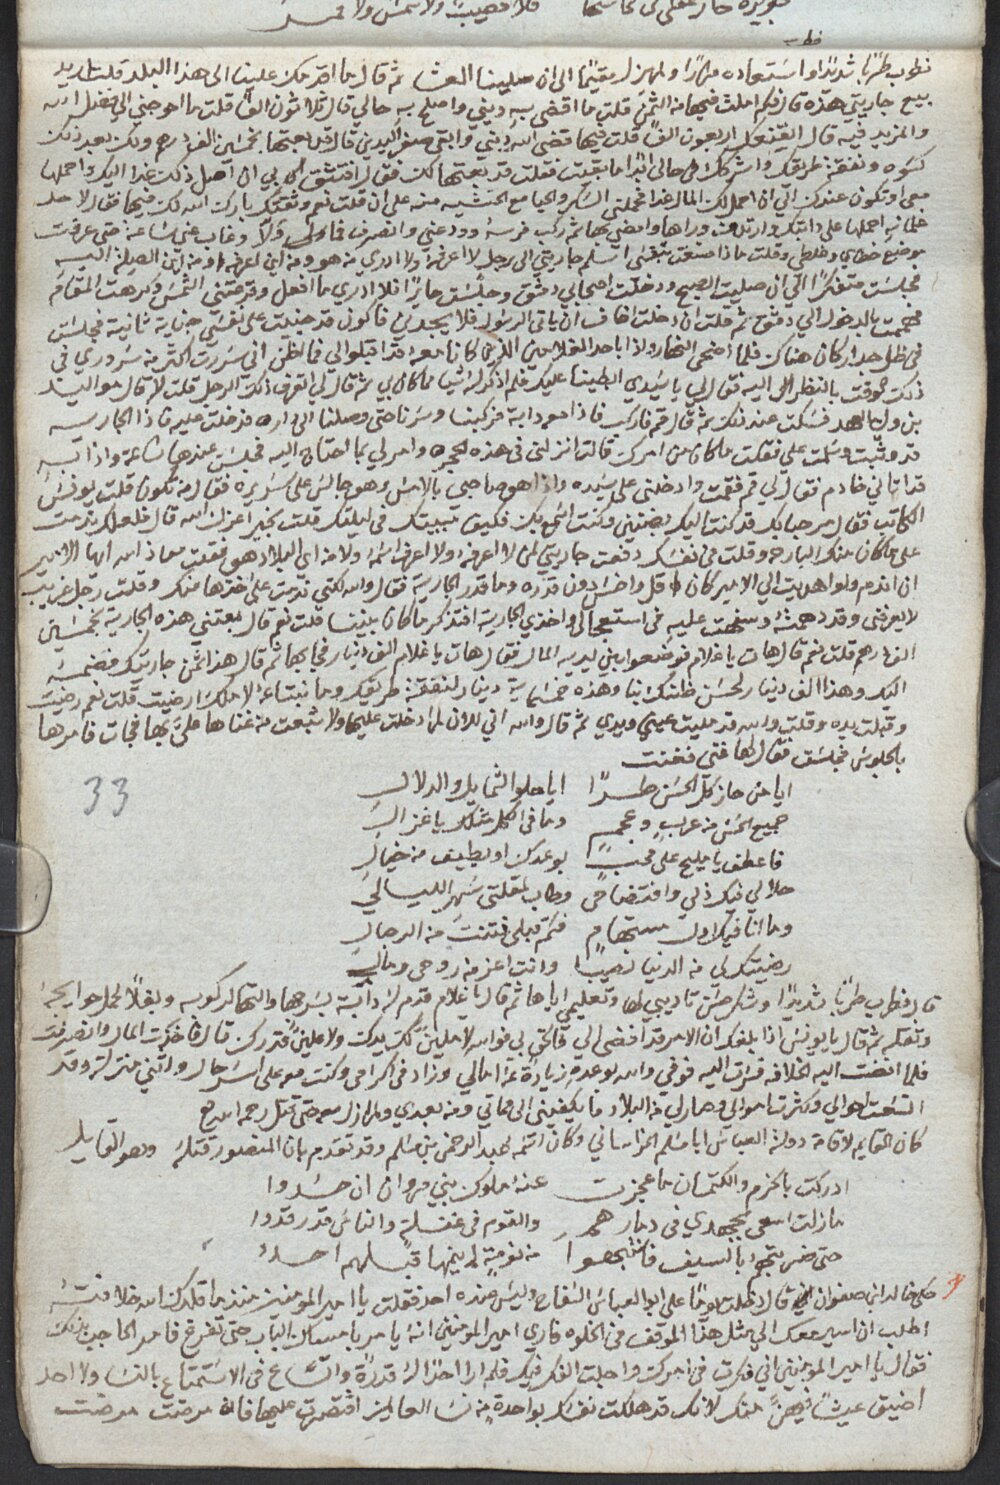 فطرب طربًا شديدًا واستعاده مرارًا ولم يزل مقيمًا الى ان صلينا العشا ثم قال ما اقدمك علينا الى هذا البلد قلت اريد
بيع جاريتي هذه قال فكم املت فيها من الثمن قلت ما اقضي به ديني واصلح به حالي قال ثلاثون الفًا قلت ما احوجني الى فضل الله
والمزيد فيه قال ايقنعك اربعون الفًا قلت فيها قضى الله ديني وابقى صفر اليدين قال قد بعتها بخمسين الف درهم ولك بعد ذلك
كسوة ونفقة طريقك واشركك في حالي ابدًا ما بقيت فقلت قد بعتها لك فقال افتثق بي ان احمل ذلك غدا اليك واحملها
معي او تكون عندك الى ان احمل لك المال غدا فحملني السكر والحيا مع الخشية منه على ان قلت نعم وثقت بك بارك الله لك فيها فقال لاحد
غلمانه احملها على دابتك وارتدف وراها وامض بها ثم ركب فرسه وودعني وانصرف فما هو الا وغاب عني ساعة حتى عرفت
موضع خطاي وغلطي وقلت ماذا صنعت بنفسي اسلم جاريتي الى رجل لا اعرفه ولا ادري من هو ومن اين اعرفه ومن اين الصلة اليه
فجلست متفكرًا الى ان صليت الصبح ودخلت اصحابي دمشق وجلست حائرًا فلا ادري ما افعل وقرعتني الشمس وكرهت المقام
فهممت بالدخول الى دمشق ثم قلت ان دخلت اخاف ان ياتي الرسول فلا يجدني فاكون قد جنيت على نفسي جناية ثانية فجلست
في ظل جدار كان هناك فلما اضحى النهار واذا باحد الغلامين اللذين كانا معه اقبل الي فما اظن اني سررت اكثر من سروري في
ذلك الوقت بالنظر اليه فقال لي يا سيدي ابطينا عليك فلم اذكر له شيا مما كان بي ثم قال لي اتعرف ذلك الرجل قلت لا قال هو الوليد
بن يزيد فسكت عند ذلك ثم قال قم فاركب فاذا معه دابة فركبنا وسرنا حتى وصلنا الى داره فدخلت عليه فاذا الجارية
قد وثبت وسلمت علي فقلت ما كان من امرك قالت انزلني في هذه الحجرة وامر لي بما احتاج اليه فجلست عندها ساعة واذا به
قد اتاني خادم فقال لي قم فقمت وادخلني على سيده واذا هو صاحبي بالامس وهو جالس على سريره فقال من تكون قلت يونس
الكاتب فقال مرحبا بك قد كنت اليك بضنين وكنت اسمع بك فكيف مبيتك في ليلتك قلت بخير اعزك الله قال فلعلك ندمت
على ما كان منك البارحة وقلت في نفسك دفعت جاريتي لمن لا اعرفه ولا اعرف اسمه ولا من اي البلاد هو فقلت معاذ الله ايها الامير
ان اندم ولو اهديت الى الامير كان اقل واخس دون قدره وما قدر الجارية فقال والله لكني ندمت على اخذها منك وقلت رجل غريب
لا يعرفني وقد دهمته وسفهت عليه في استعجالي واخذي الجارية افتذكر ما كان بيننا قلت نعم قال بعتني هذه الجارية بخمسين
الف درهم قلت نعم قال هات يا غلام فوضعوا بين يديه المال فقال هات يا غلام الف دينار فجا بها ثم قال هذا ثمن جاريتك فضمه
اليك وهذا الف دينار لحسن ظنك بنا وهذه خمسماية دينار لنفقة طريقك وما تبتاعه لاهلك ارضيت قلت نعم رضيت
وقبلت يده وقلت والله قد مليت عيني ويدي ثم قال والله اني للان لم ادخلت عليها ولا شبعت من غناها علي بها فجات فامرها
بالجلوس فجلست فقال لها غني فغنت
ايا من حاز كل الحسن طـرًا ايا حلو الشمايل والدلال
جميع الحسن من عرب وعجم وما في الكل مثلك يا غزال
فاعطف يا مليح على محب بوعدك او بطيف من خيال
حلالي فيك ذلي وافتضاحي وطاب لمقلتي سهر الليالي
وما انا فيك اول مستهام فكم قبلي فتنت من الرجال
رضيتك لي من الدنيا نصيبًا وانت اعز من روحي ومالي
قال فطرب طربًا شديدًا وشكر حسن تاديبي لها وتعليمي اياها ثم قال يا غلام قدم له دابة بسرجها والتها لركوبه وبغلًا لحمل حوايجه
وثقله ثم قال يا يونس اذا بلغك ان الامر قد افضى الي فالحق بي فوالله لاملين لك يدك ولاعلين قدرك قال فاخذت المال وانصرفت
فلما افضت اليه الخلافة سرت اليه فوفى والله بوعده وزاد في اكرامي وكنت معه على اسر حال واسنى منزلة وقد
اتسعت احوالي وكثرت اموالي وصار لي من البلاد ما يكفيني الى مماتي ومن بعدي ولم ازل معه حتى قتل رحمه الله
كان القايم لاقامة دولة العباس ابا مسلم الخراساني وكان اسمه عبد الرحمن بن مسلم وقد تقدم بان المنصور قتله وهو القايل
ادركت بالحزم والكتمان ما عجزت عنه ملوك بني مروان ان حشدوا
ما زلت اسعى بجهدي في دمارهم والقوم في غفلة والناس قد رقدوا
حتى ضربتهم بالسيف فانتبهوا من نومة لم ينمها قبلهم احد
حكى خالد ابن صفوان قال دخلت يومًا على ابي العباس السفاح وليس عنده احد فقلت يا امير المومنين منذ ما قلدك الله خلافته
اطلب ان اسير معك الى مثل هذا الموقف في الخلوة فاري امير المومنين انه يامر بامساك الباب حتى نفرغ فامر الحاجب بذلك
فقال يا امير المومنين اني فكرت في امرك واجلت الفكر فيك فلم ار احدا له قدرة واتساع في الاستمتاع بالنسا ولا احد
اضيق عيشًا فيهن منك لانك قد هلكت نفسك بواحدة من نسا العالمين اقتصرت عليها فان مرضت مرضت
33